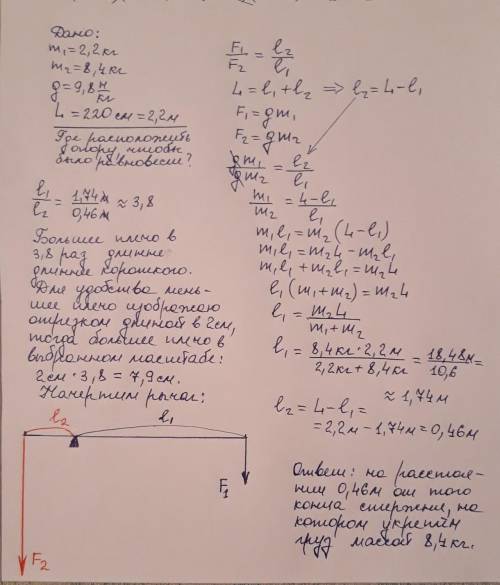 Дано:
m₁ = 2,2 кг
m₂ = 8,4 кг
g = 9,8 м/кг
L = 220 см = 2,2 м
Где расположить
опору, чтобы
было равновесие?
l₁/l₂ = 1,74 м/0,46 м ≈ 3,8
Большее плечо в
3,8 раз длинне
длинне короткого.
Для удобства мень-
шее плечо изображаю
отрезком длиной в 2 см,
тогда большее плечо в
выбранном масштабе:
2 см · 3,8 = 7,9 см.
Начертим рычаг:
l₂
l₁
F₁
F₂
F₁/F₂ = l₂/l₁
L = l₁ + l₂ ⇒ l₂ = L - l₁
F₁ = gm₁
F₂ = gm₂
gm₁/gm₂ = l₂/l₁
m₁/m₂ = L - l₁/l₁
m₁l₁ = m₂(L - l₁)
m₁l₁ = m₂L - m₂l₁
m₁l₁ + m₂l₁ = m₂L
l₁(m₁ + m₂) = m₂L
l₁ = m₂L/m₁ + m₂
l₁ = 8,4 кг · 2,2 м/2,2 кг + 8,4 кг = 18,48 м/10,6 =
≈ 1,74 м
l₂ = L - l₁ =
= 2,2 м - 1,74 м = 0,46 м
Ответ: на расстоя-
нии 0,46 м от того
конца стержня, на
котором укреплён
груз массой 8,4 кг.